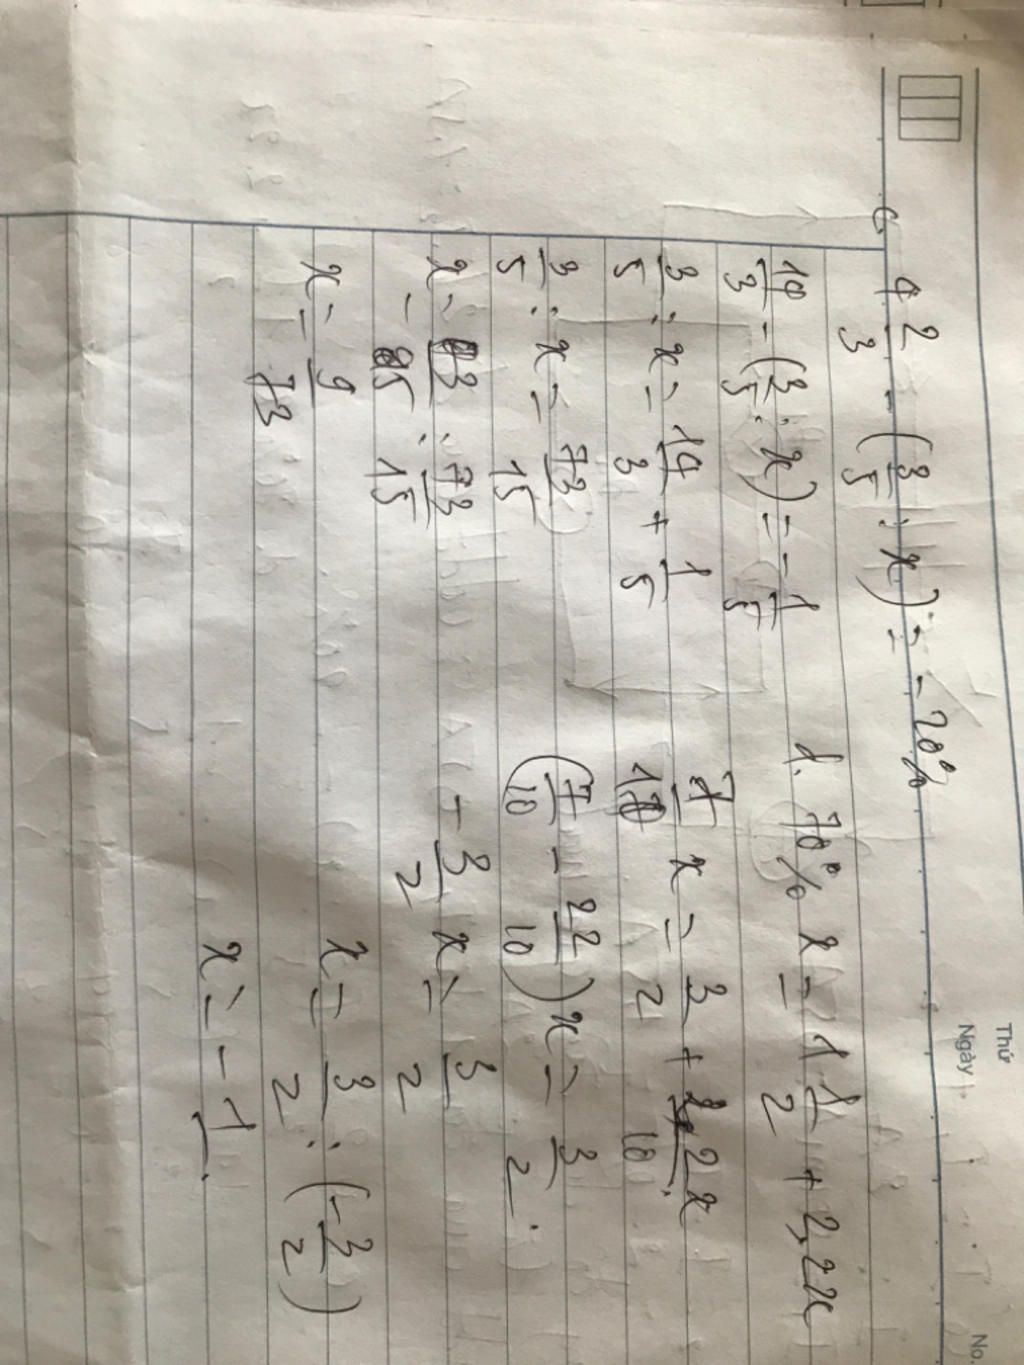 Thứ
Ngày
No
c 4 2/3 - (3/5 : x) = -20%
14/3 - (3/5 : x) = -1/5
3/5 : x = 14/3 + 1/5
3/5 : x = 73/15
x = 3/5 : 73/15
x = 9/73
d. 70% x = 1 1/2 + 2,2x
7/10 x = 3/2 + 22/10 x
(7/10 - 22/10) x = 3/2.
-3/2 x = 3/2
x = 3/2 : (-3/2)
x = -1.